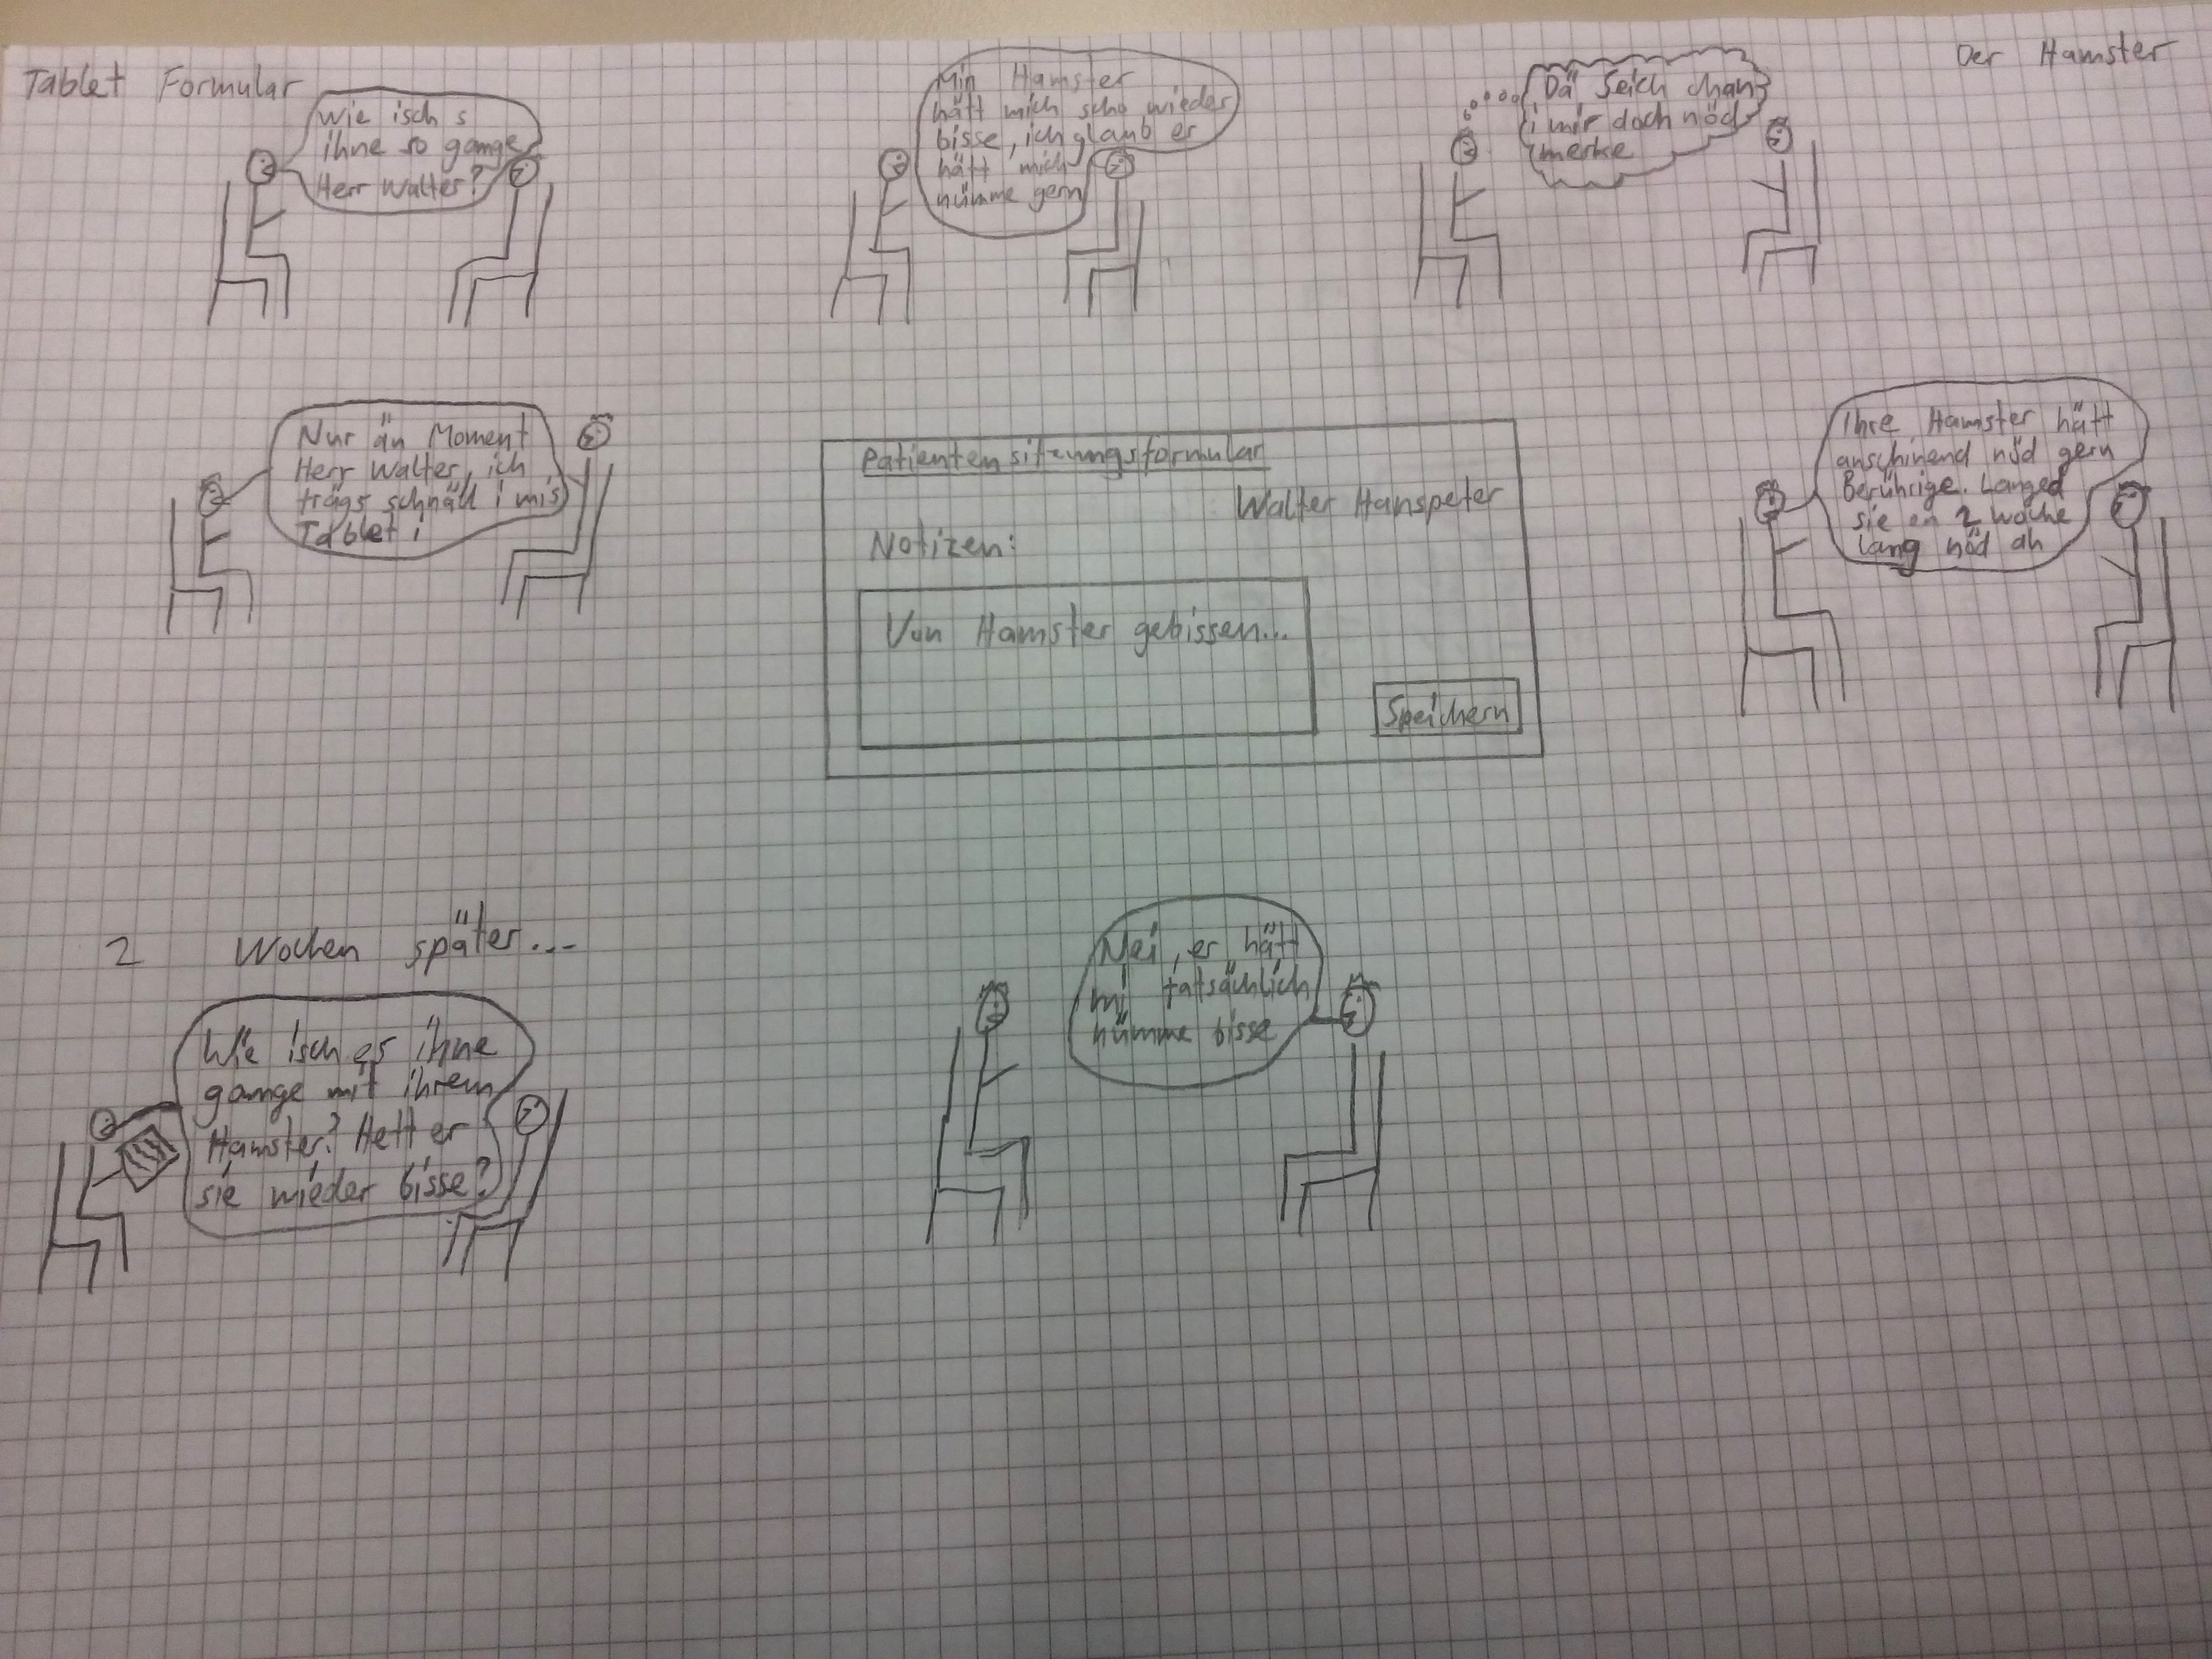 Tablet Formular
Der Hamster
Wie isch s
ihne so gange
Herr Walter?
Min Hamster
hätt mich scho wieder
bisse, ich glaub er
hätt mich
nümme gern
Dä Seich chan
i mir doch nöd
merke
Nur än Moment
Herr Walter, ich
trägs schnäll i mis
Tablet i
Patientensitzungsformular
Walter Hanspeter
Notizen:
Von Hamster gebissen...
Speichern
Ihre Hamster hätt
anschinend nöd gern
Berührige. Langed
sie en 2 Wuche
lang nöd ah
2 Wochen später...
Wie isch es ihne
gange mit ihrem
Hamster? Hett er
sie wieder bisse?
Nei, er hätt
mi tatsächlich
nümme bisse